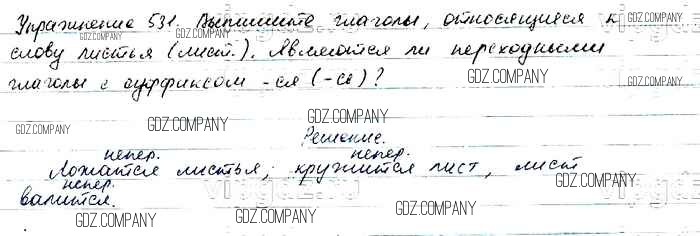 Упражнение 531. Выпишите глаголы, относящиеся к
слову листья (лист). Являются ли переходными
глаголы с суффиксом -ся (-сь)?
GDZ.COMPANY
GDZ.COMPANY
GDZ.COMPANY
GDZ.COMPANY
GDZ.COMPANY
GDZ.COMPANY
Решение.
непер. непер.
Ложатся листья, кружится лист, лист
непер.
валится.
GDZ.COMPANY
GDZ.COMPANY
GDZ.COMPANY
GDZ.COMPANY